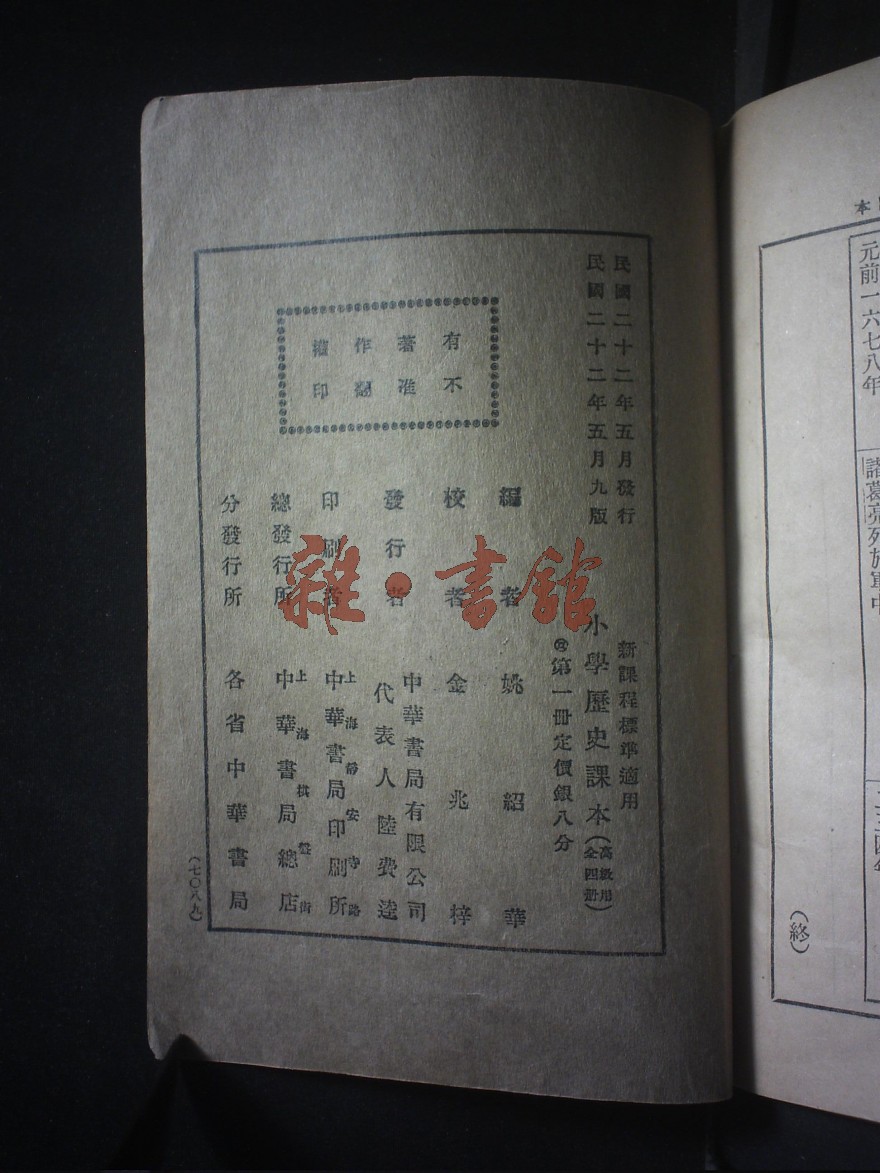 民國二十二年五月發行
民國二十二年五月九版
新課程標準適用
小學歷史課本(高級用全四册)
第一冊定價銀八分
有不
著准
作翻
權印
編者 姚紹華
校者 金兆梓
發行者 中華書局有限公司
代表人 陸費逵
印刷者 上海靜安寺路
中華書局印刷所
總發行所 上海棋盤街
中華書局總店
分發行所 各省中華書局
(七〇八九)
雜·書館
本
元前一六七八年
諸葛亮死於軍中
(終)